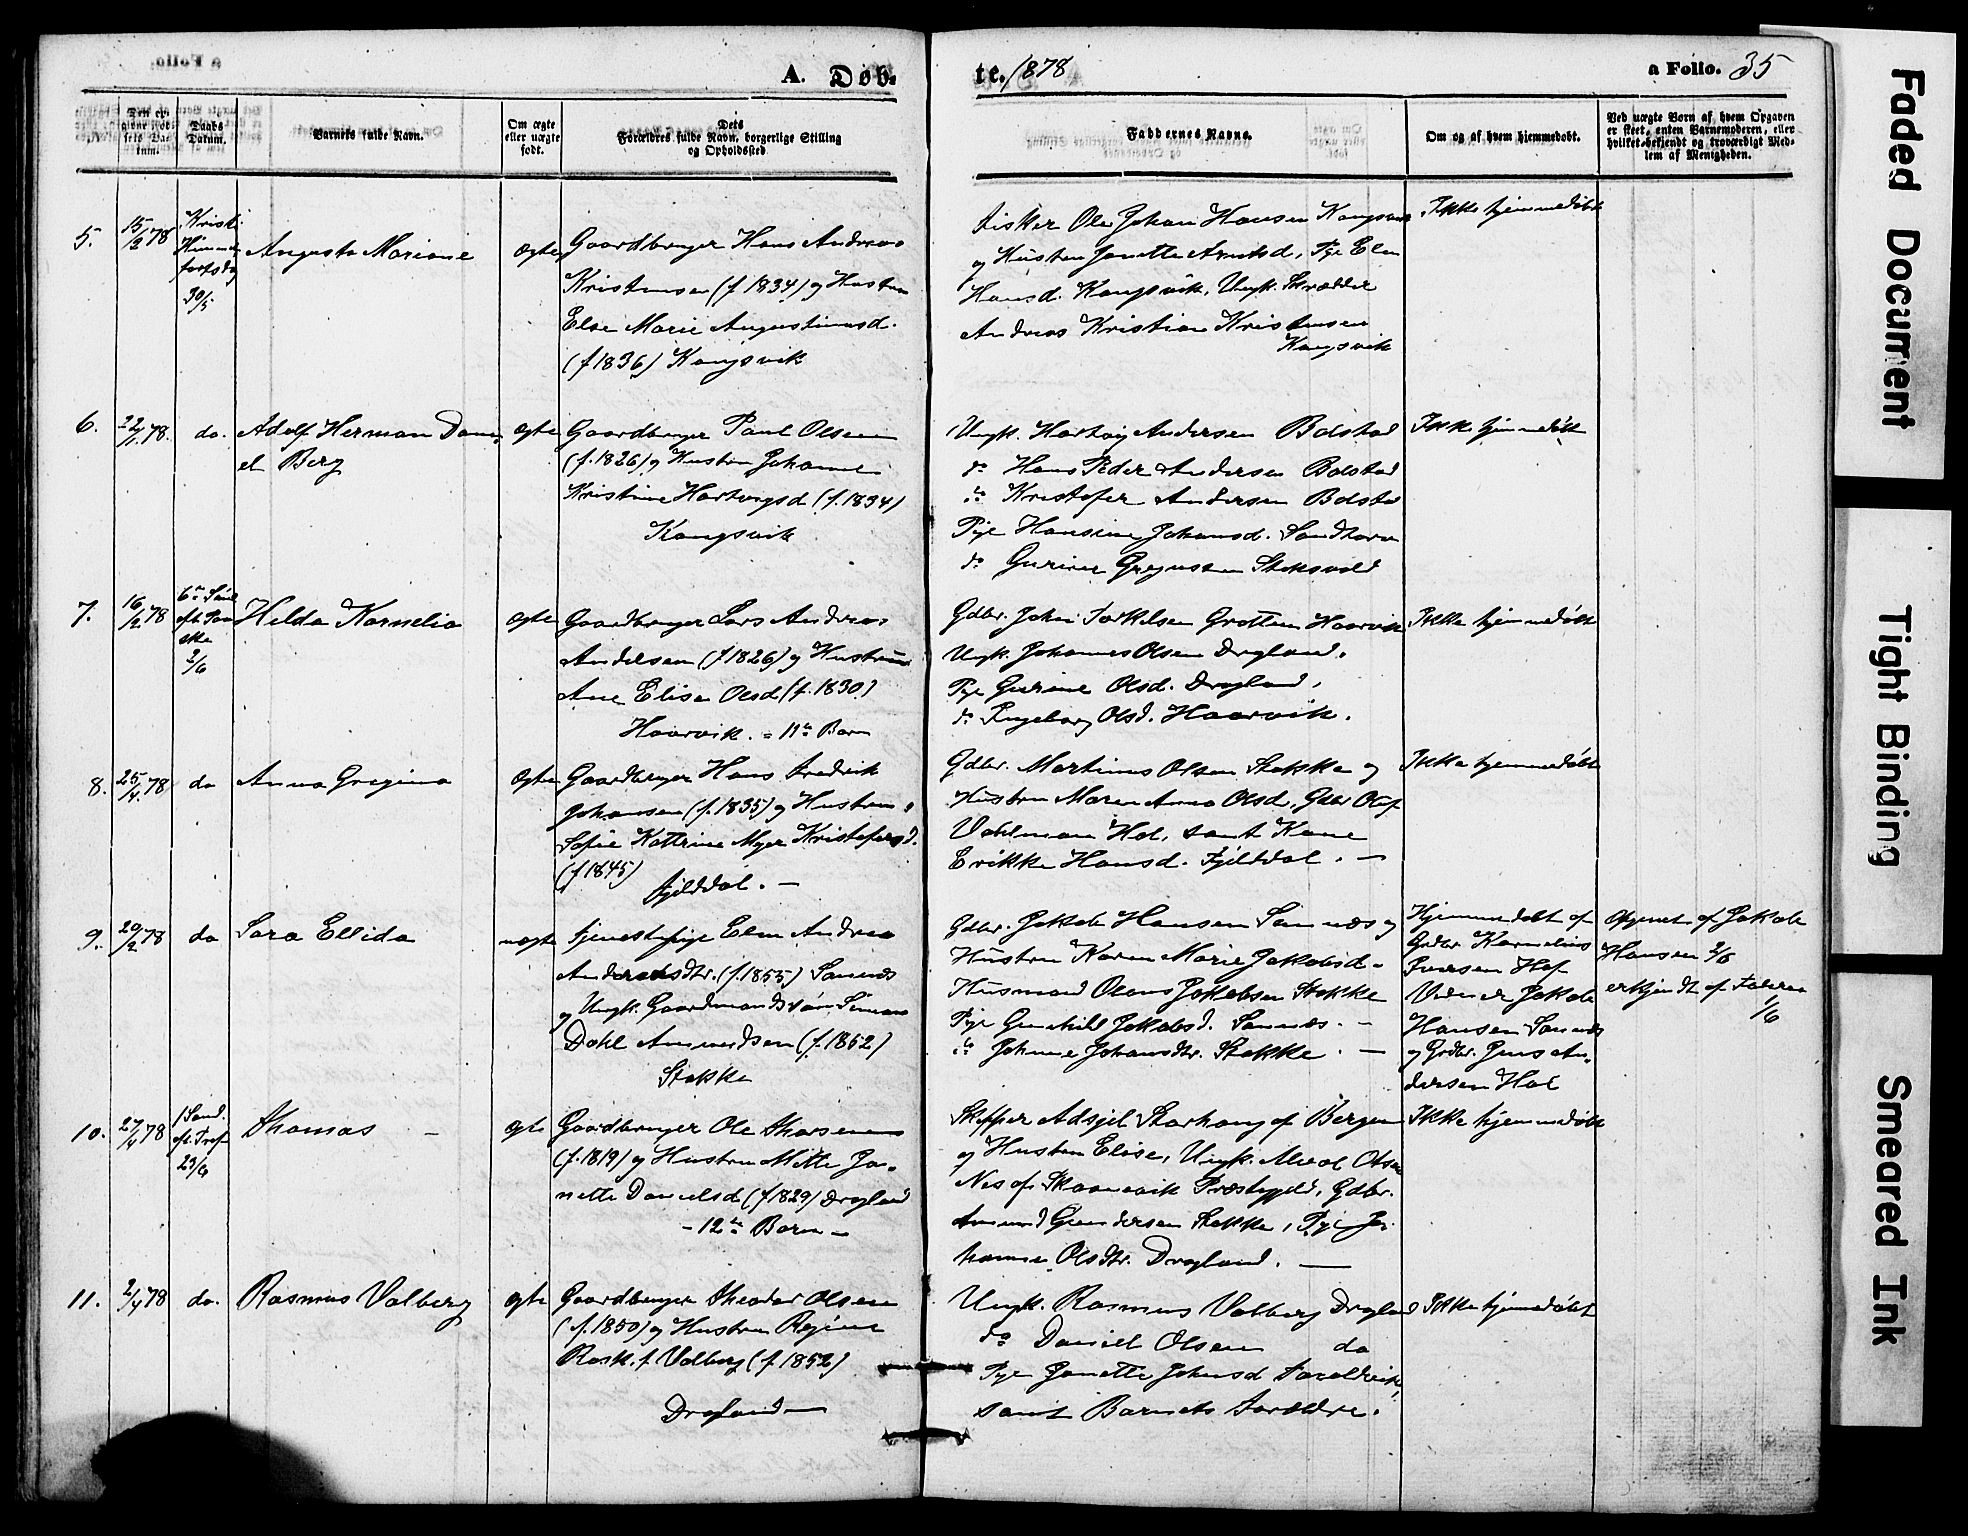 A. Døb-
te. 1878
a Folio. 35
Barnets fulde Navn.
Om ægte eller uægte født.
Forældres fulde Navn, borgerlige Stilling og Opholdssted
Faddernes Navne.
Om og af hvem hjemmedøbt.
5. 15/2 78 Kristi Himmelfartsdag 30/5
Augusta Mariane
ægte
Gaardbruger Hans Andreas
Kristensen (f 1834) og Hustru
Else Marie Augustinusd.
(f 1836) Kongsvik
Fisker Ole Johan Hansen Kongsvik
og Hustru Janette Arntsd, Pige Elen
Hansd. Kongsvik, Ungk. Skrædder
Andreas Kristian Kristensen
Kongsvik
Ikke hjemmedøbt
6. 22/1 78. do.
Adolf Herman Dani-
el Berg
ægte
Gaardbruger Paul Olsen
(f. 1826) og Hustru Johanne
Kristine Hartvigsd (f. 1834)
Kongsvik
Ungk. Hartvig Andersen Bolstad
do Hans Peder Andersen Bolstad
do Kristofer Andersen Bolstad
Pige Hansine Johansd. Sandtorv
do Gurine
Ikke hjemmedøbt
7. 16/2 78 6te Sønd. eft. Paaske 2/6
Hilda Kornelia
ægte
Gaardbruger Lars Andreas
Andersen (f 1826) og Hustru
Ane Elisa Olsd (f. 1830)
Haarvik. - 11te Barn
Gdbr. Johan Torkilsen Grottem Haarvik
Ungk. Johannes Olsen Dragland.
Pige Gurine Olsd. Dragland,
do Ingeborg Olsd. Haarvik.
Ikke hjemmedøbt
8. 25/4 78 do
Anna Gregina
ægte
Gaardbruger Hans Fredrik
Johansen (f. 1835) og Hustru
Sofie Kattrine Myer Kristofersd.
(f 1845)
Fjelddal. —
Gdbr. Martinus Olsen Stokke og
Hustru Maren Anna Olsd, Gdbr Oluf
Vahlman Hol, samt Kone
Erikke Hansd. Fjelddal. —
Ikke hjemmedøbt
9. 20/2 78 do
Sara Ellida
uægte
Tjenestepige Elen Andrea
Andersdtr. (f. 1855) Sannæs
og Ungk. Gaardmandssøn Simon
Dahl Amundsen (f. 1852)
Stokke
Gdbr. Jakob Hansen Sannæs og
Hustru Karen Marie Jakobsd -
Husmand Olaus Jakobsen Stokke
Pige Gunhild Jakobsd. Sannæs. -
do Johanne Johansdtr. Stokke. —
Hjemmedøbt af
Grdbr. Kornelius
Iversen Hol
Vidner Jakob
Hansen Sannæs
og Grdbr. Jens An-
dersen Hol
Opgivet af Jakob
Hansen 2/6
erkjendt af Faderen
1/6
10. 27/4 78 1 Sønd. eft. Tref 23/6
Thomas —
ægte
Gaardbruger Ole Thorsen
(f. 1819) og Hustru Mette Ja-
nette Danielsd (f 1829) Dragland
- 12te Barn -
Skipper Adsjel Storhaug af Bergen
og Hustru Elise, Ungk. Olsen
Nes af Skaanevik Præstegjeld, Gdbr.
Amund Gundersen Stokke, Pige Jo-
hanne Olsdtr. Dragland. —
Ikke hjemmedøbt
11. 2/4 78 do.
Rasmus Valberg
ægte
Gaardbruger Theodor Olsen
(f. 1850) og Hustru Regine
Rask. f. Valberg (f 1852)
Dragland —
Ungk. Rasmus Valberg Dragland
do Daniel Olsen do
Pige Janette Johnsd
samt Barnets Forældre.
Ikke hjemmedøbt
Faded Document
Tight Binding
Smeared Ink